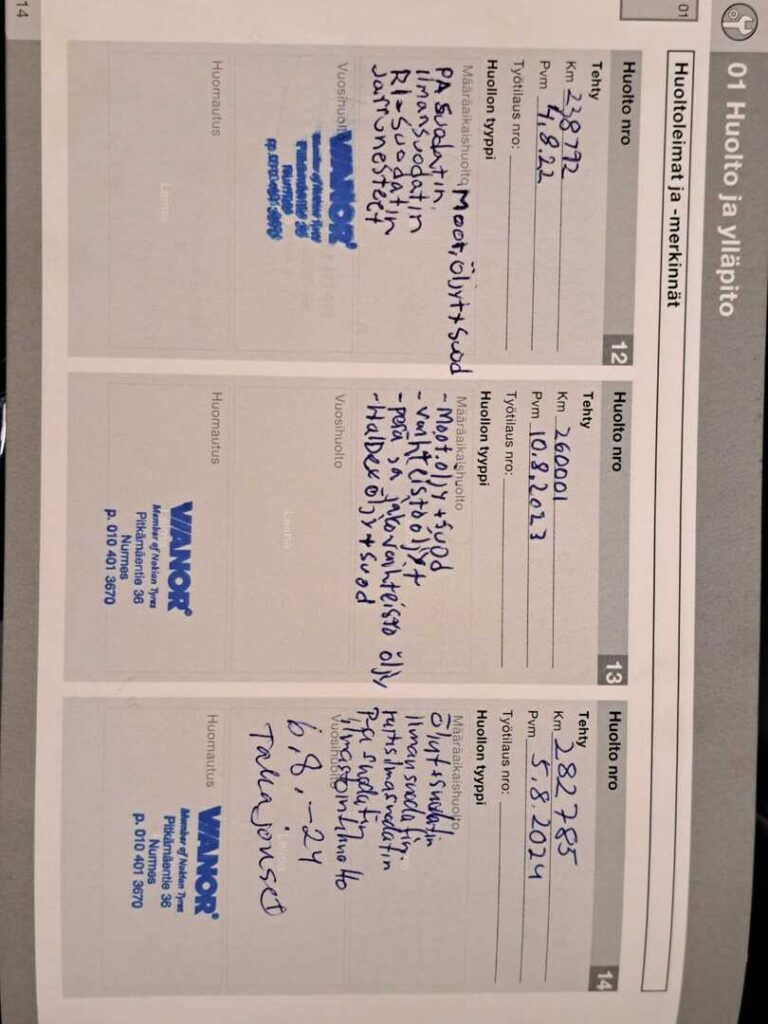 01 Huolto ja ylläpito
01
Huoltoleimat ja -merkinnät
Huolto nro 12
Tehty
Km 238792
Pvm 4.8.22
Työtilaus nro:
Huollon tyyppi
Määräaikaishuolto Moot, öljyt + suod
PA suodatin,
ilmansuodatin
RI-Suodatin
Jarrunesteet
Vuosihuolto
VIANOR
Member of Nokian Tyres
Pitkämäentie 36
Nurmes
p. 010 401 3670
Huomautus
Leima
Huolto nro 13
Tehty
Km 260001
Pvm 10.8.2023
Työtilaus nro:
Huollon tyyppi
Määräaikaishuolto
- Moot.öljy + suod
- vaihteistoöljyt
- perä ja jakovaihteisto öljy
- Haldex öljy + suod
Vuosihuolto
Leima
Huomautus
VIANOR®
Member of Nokian Tyres
Pitkämäentie 36
Nurmes
p. 010 401 3670
Huolto nro 14
Tehty
Km 282785
Pvm 5.8.2024
Työtilaus nro:
Huollon tyyppi
Määräaikaishuolto
Öljyt + suodatin
ilmansuodatin.
raitisilmasuodatin
Pa suodatin
Vuosihuolto
ilmastointihuolto
6.8.-24
Takajouset
Huomautus
VIANOR®
Member of Nokian Tyres
Pitkämäentie 36
Nurmes
p. 010 401 3670
14